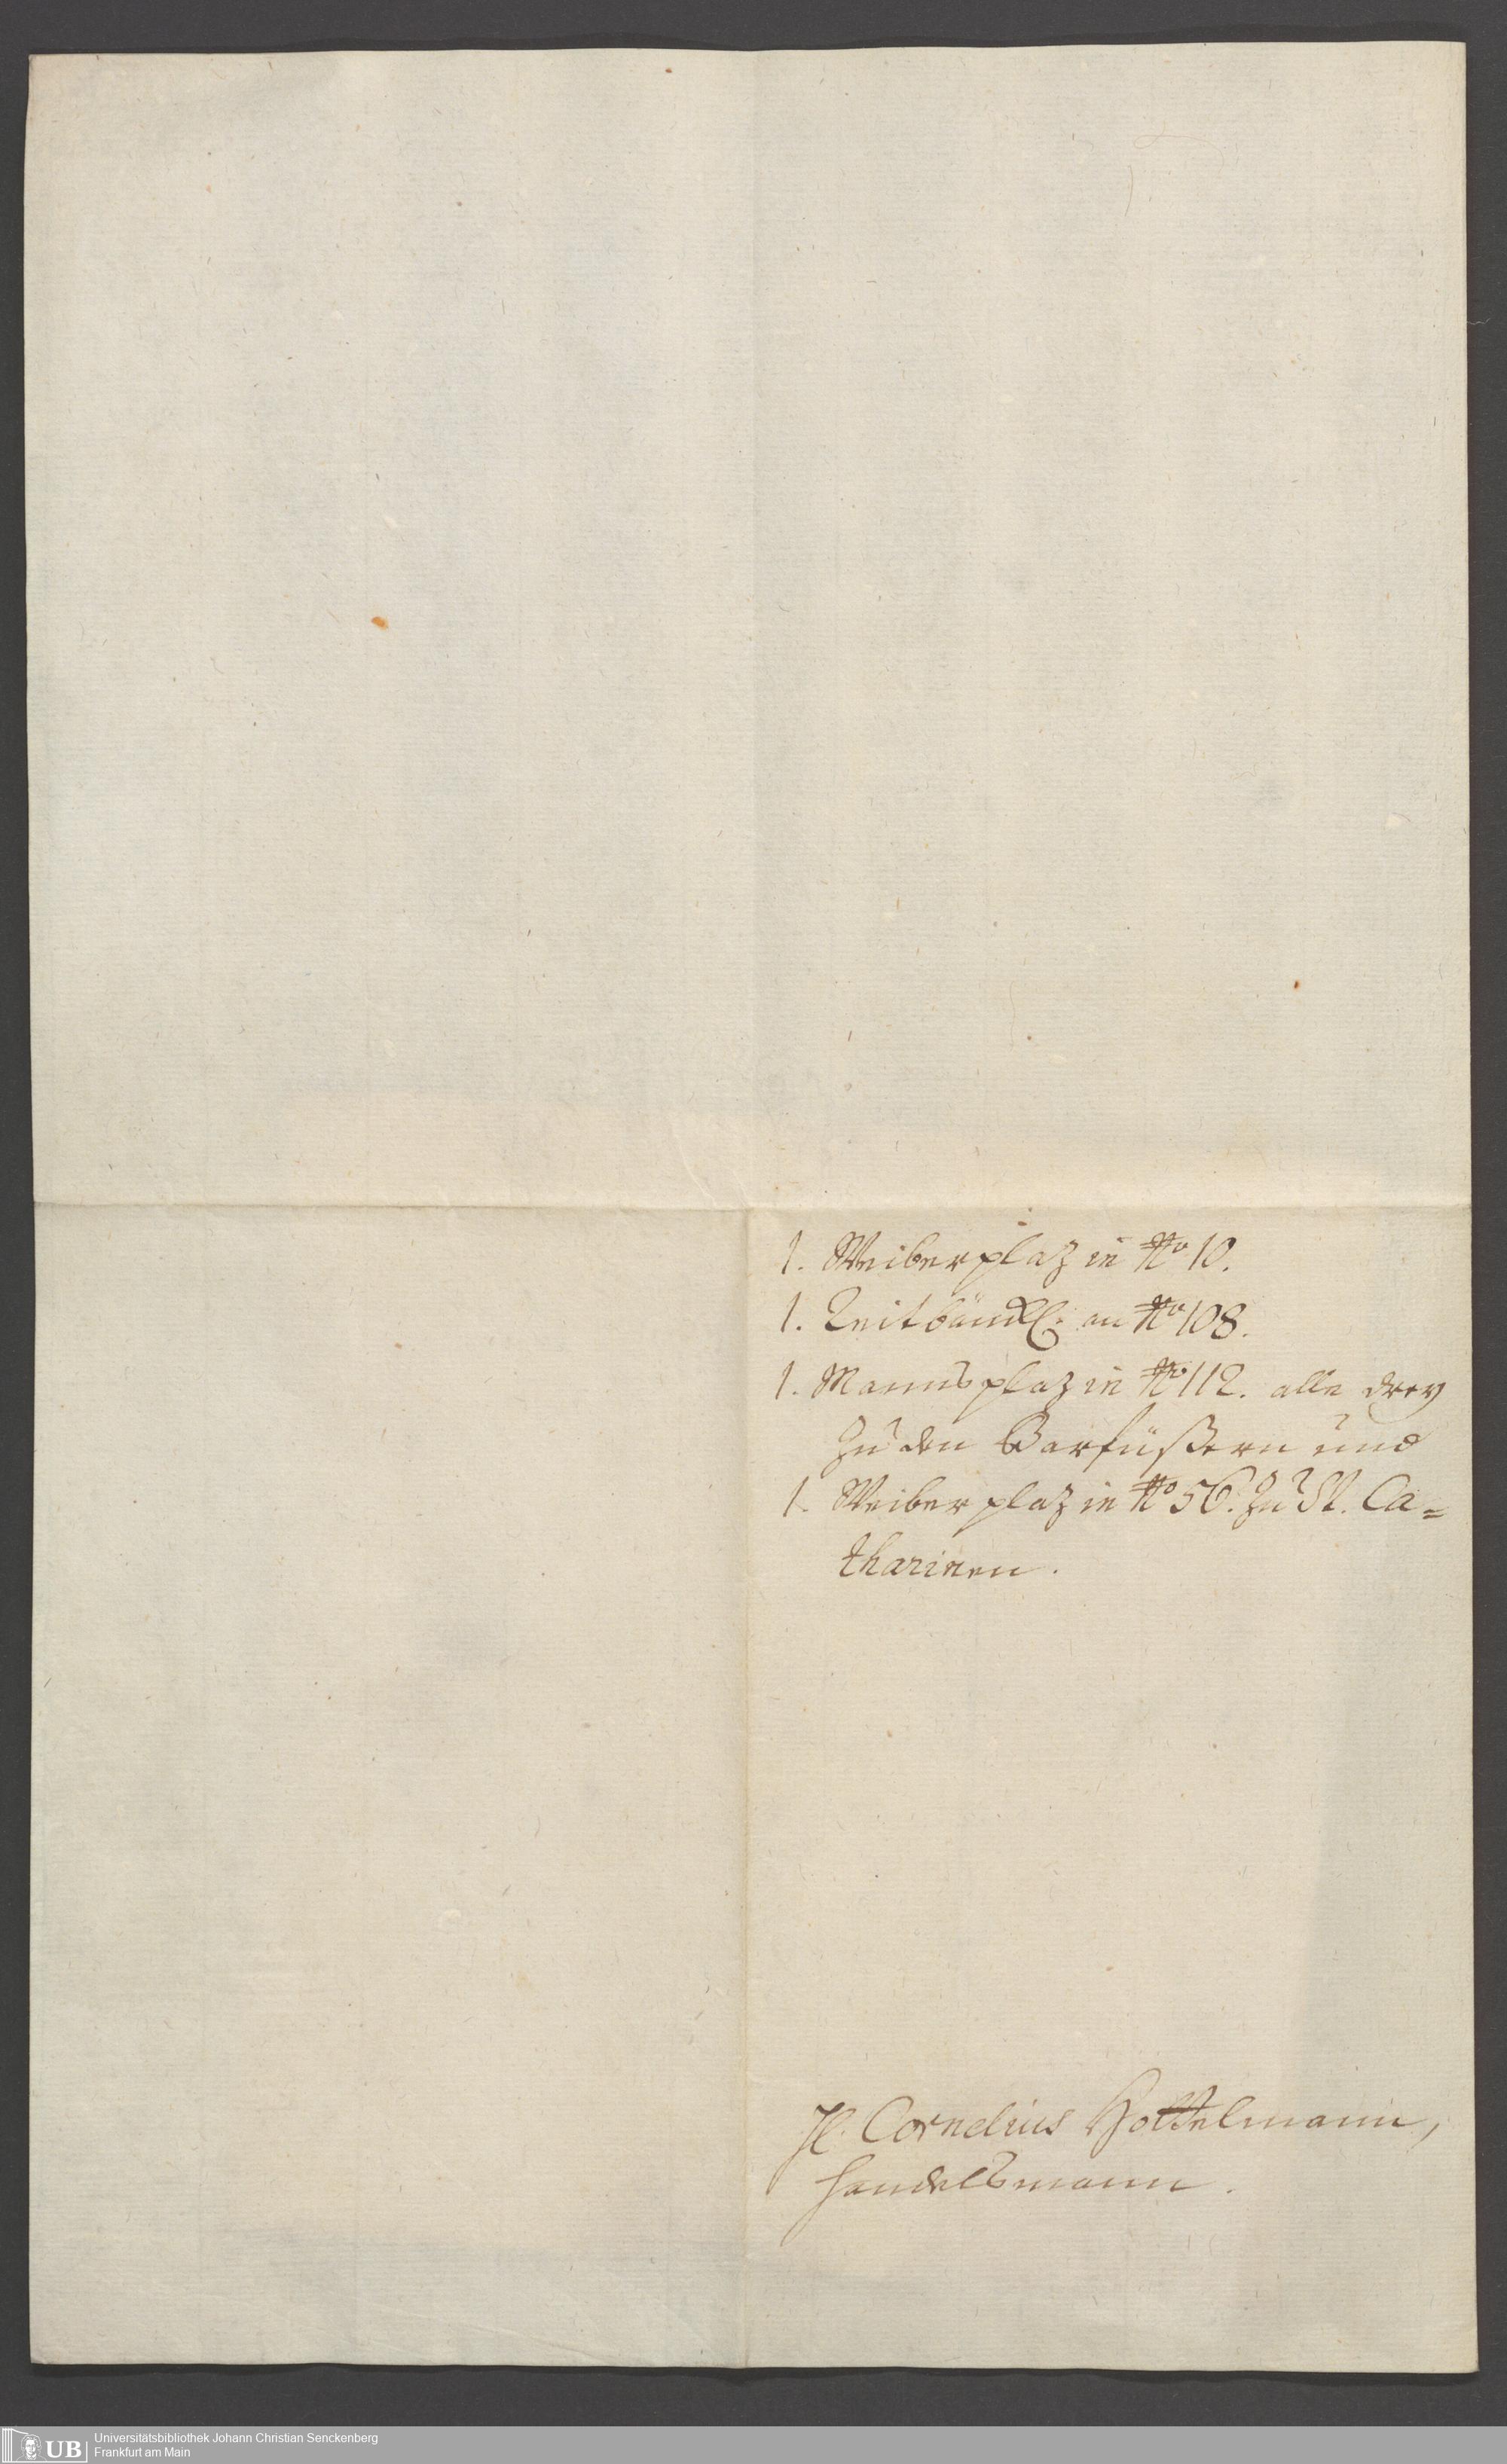 1. Weiberplaz in No 10.
1. Leitbänckl. an No 108.
1. Mannsplaz in No 112. alle drey
zu den Barfüßern und
1. Weiberplaz in No 56. zu St. Ca=
tharinen.
H. Cornelius Hottelmann,
Handelsmann.
UB
Universitätsbibliothek Johann Christian Senckenberg
Frankfurt am Main